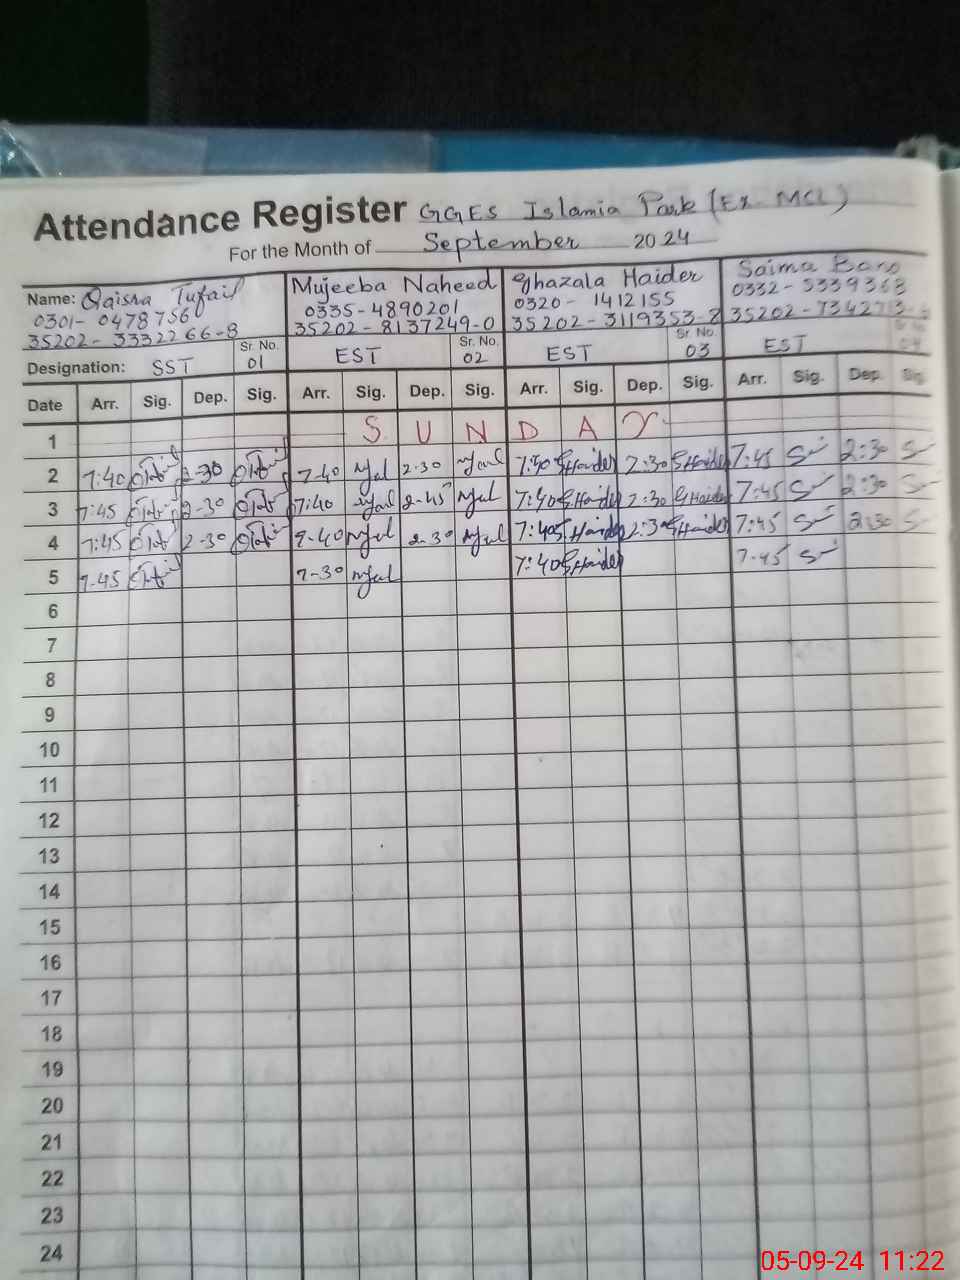 Attendance Register GGES Islamia Park (Ex. MCL)
For the Month of September 2024
Name: Qaisra Tufail Mujeeba Naheed Ghazala Haider Saima Bano
0301-0478756 0335-4890201 0320-1412155 0332-
35202-3332266-8 35202-8137249-0 35202-3119353-8 35202-
Sr. No. Sr. No. Sr. No. Sr. No.
Designation: SST 01 EST 02 EST 03 EST 04
Date Arr. Sig. Dep. Sig. Arr. Sig. Dep. Sig. Arr. Sig. Dep. Sig. Arr. Sig. Dep. Sig.
1 S U N D A Y
2 7:40 2-30 7-40 2-30 GHaider 2:30 GHaider 7:45 2:30
3 7:45 2-30 7:40 2-45 7:40 GHaider 2:30 GHaider 7:45 2:30
4 7:45 2-30 7-40 2-30 GHaider 2:30 GHaider 7:45 2:30
5 7-45 7-30 7:40 GHaider 7-45
6
7
8
9
10
11
12
13
14
15
16
17
18
19
20
21
22
23
24
05-09-24 11:22